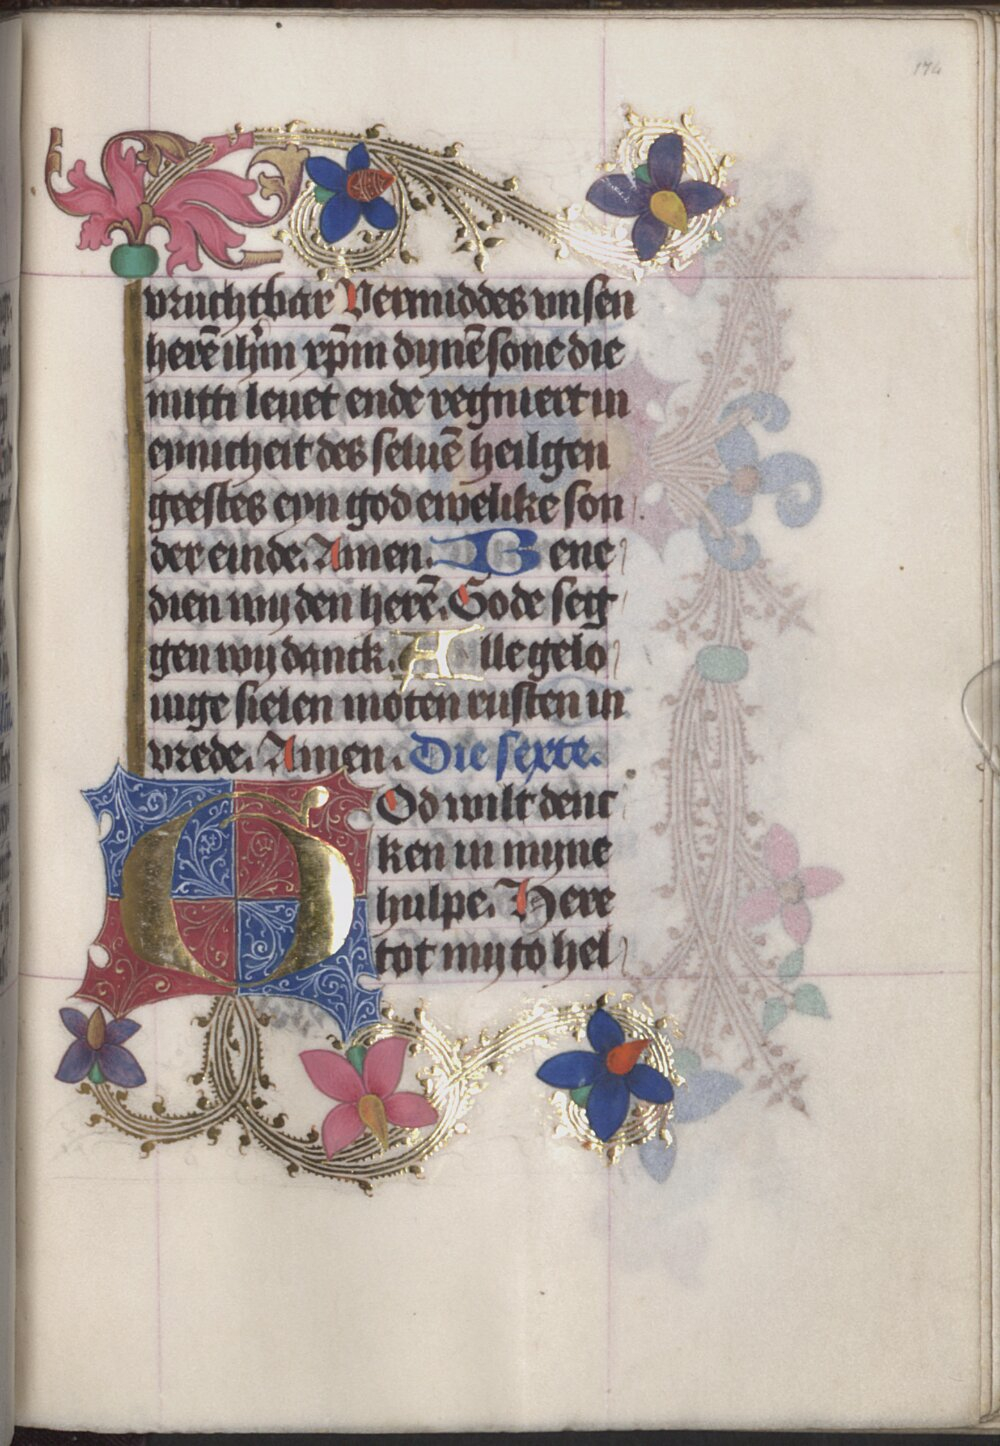 174
vruchtbar Vermiddes vnsen
herē ih̄m xp̄m dynē sone die
mitti leuet ende regniert in
eynicheit des seluē heilgen
geestes eyn god ewelike son
der einde. Amen. Bene
dien wy den herē. Gode seg
gen wy danck. Alle gelo
uige sielen moten rusten in
vrede. Amen. Die sexte.
God wilt denc
ken in myne
hulpe. Here
tot my to hel